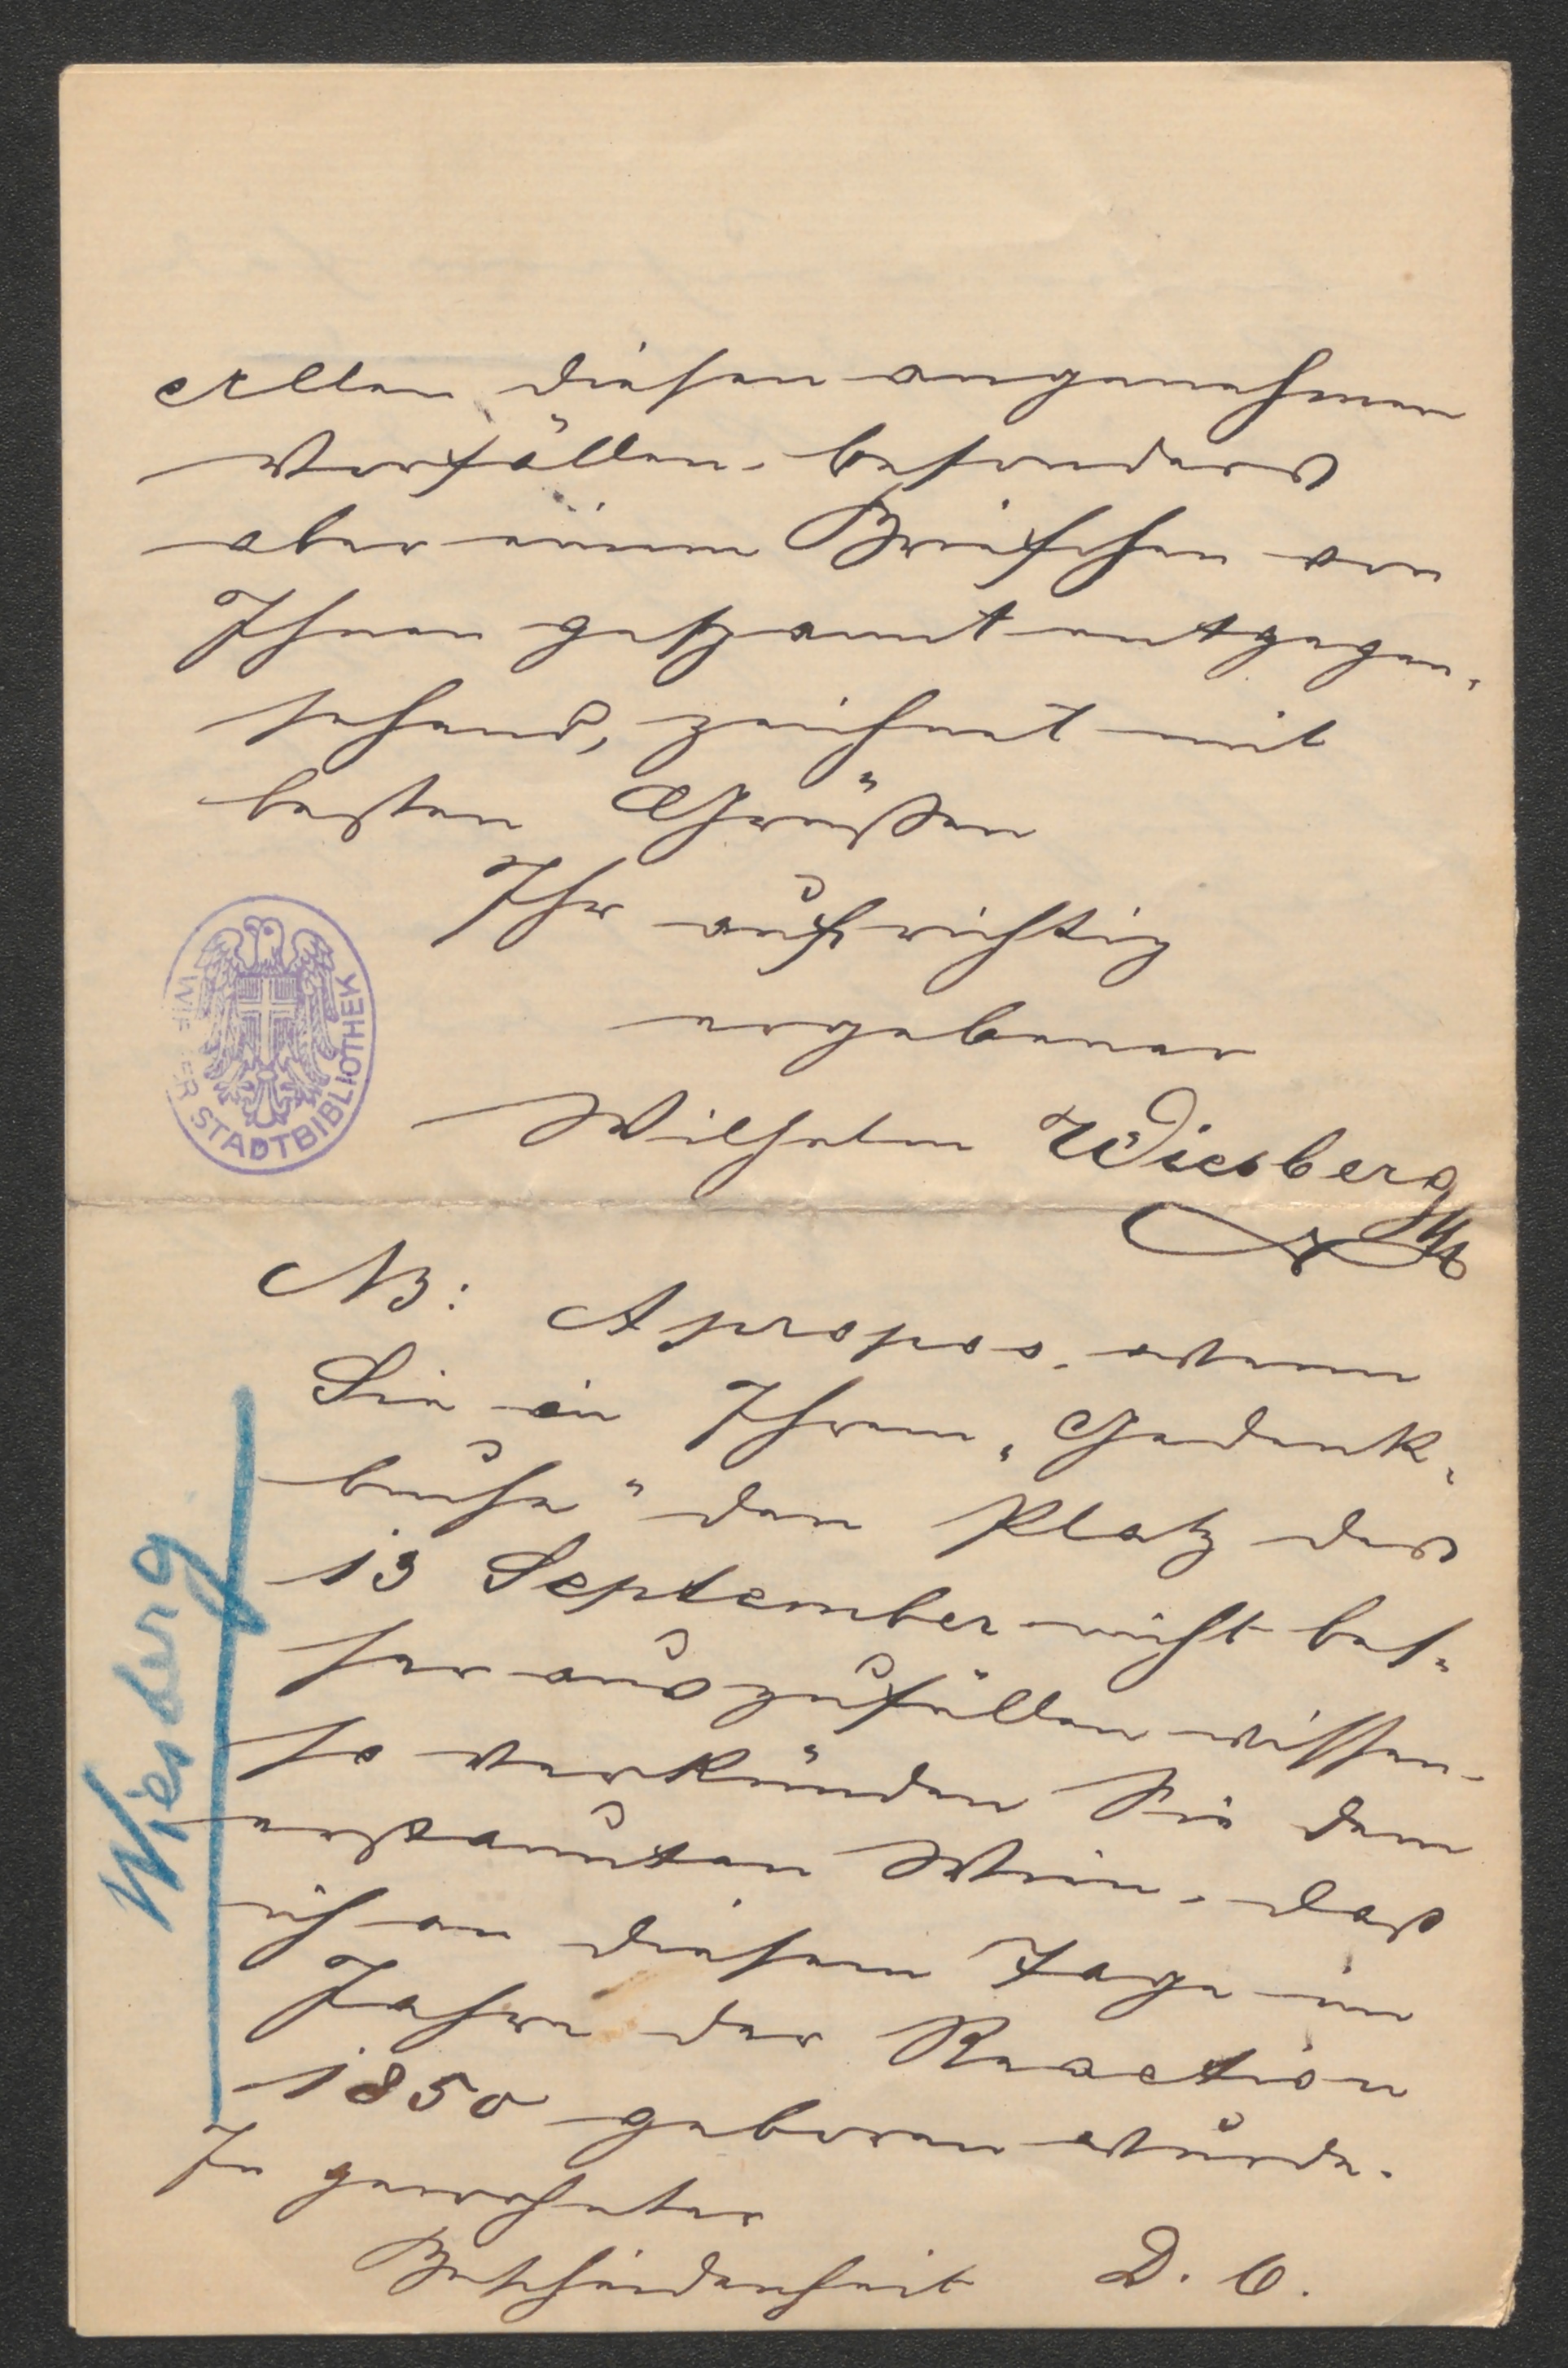 Allen diesen angenehmen
Vorfällen, besonders
aber einem Briefchen von
Ihnen gespannt entgegen-
sehend, zeichnet mit
besten Grüßen
Ihr aufrichtig
ergebener
Wilhelm Wiesberg
WIENER STADTBIBLIOTHEK
NB: Apropos, wenn
Sie in Ihrem „Gedenk-
buche" den Platz des
13 September nicht bes-
ser auszufüllen wissen,
so verkünden Sie dem
erstaunten Wien, daß
ich an diesem Tage im
Jahre der Reaction
1850 geboren wurde.
In gewohnter
Bescheidenheit D. O.
Wiesberg